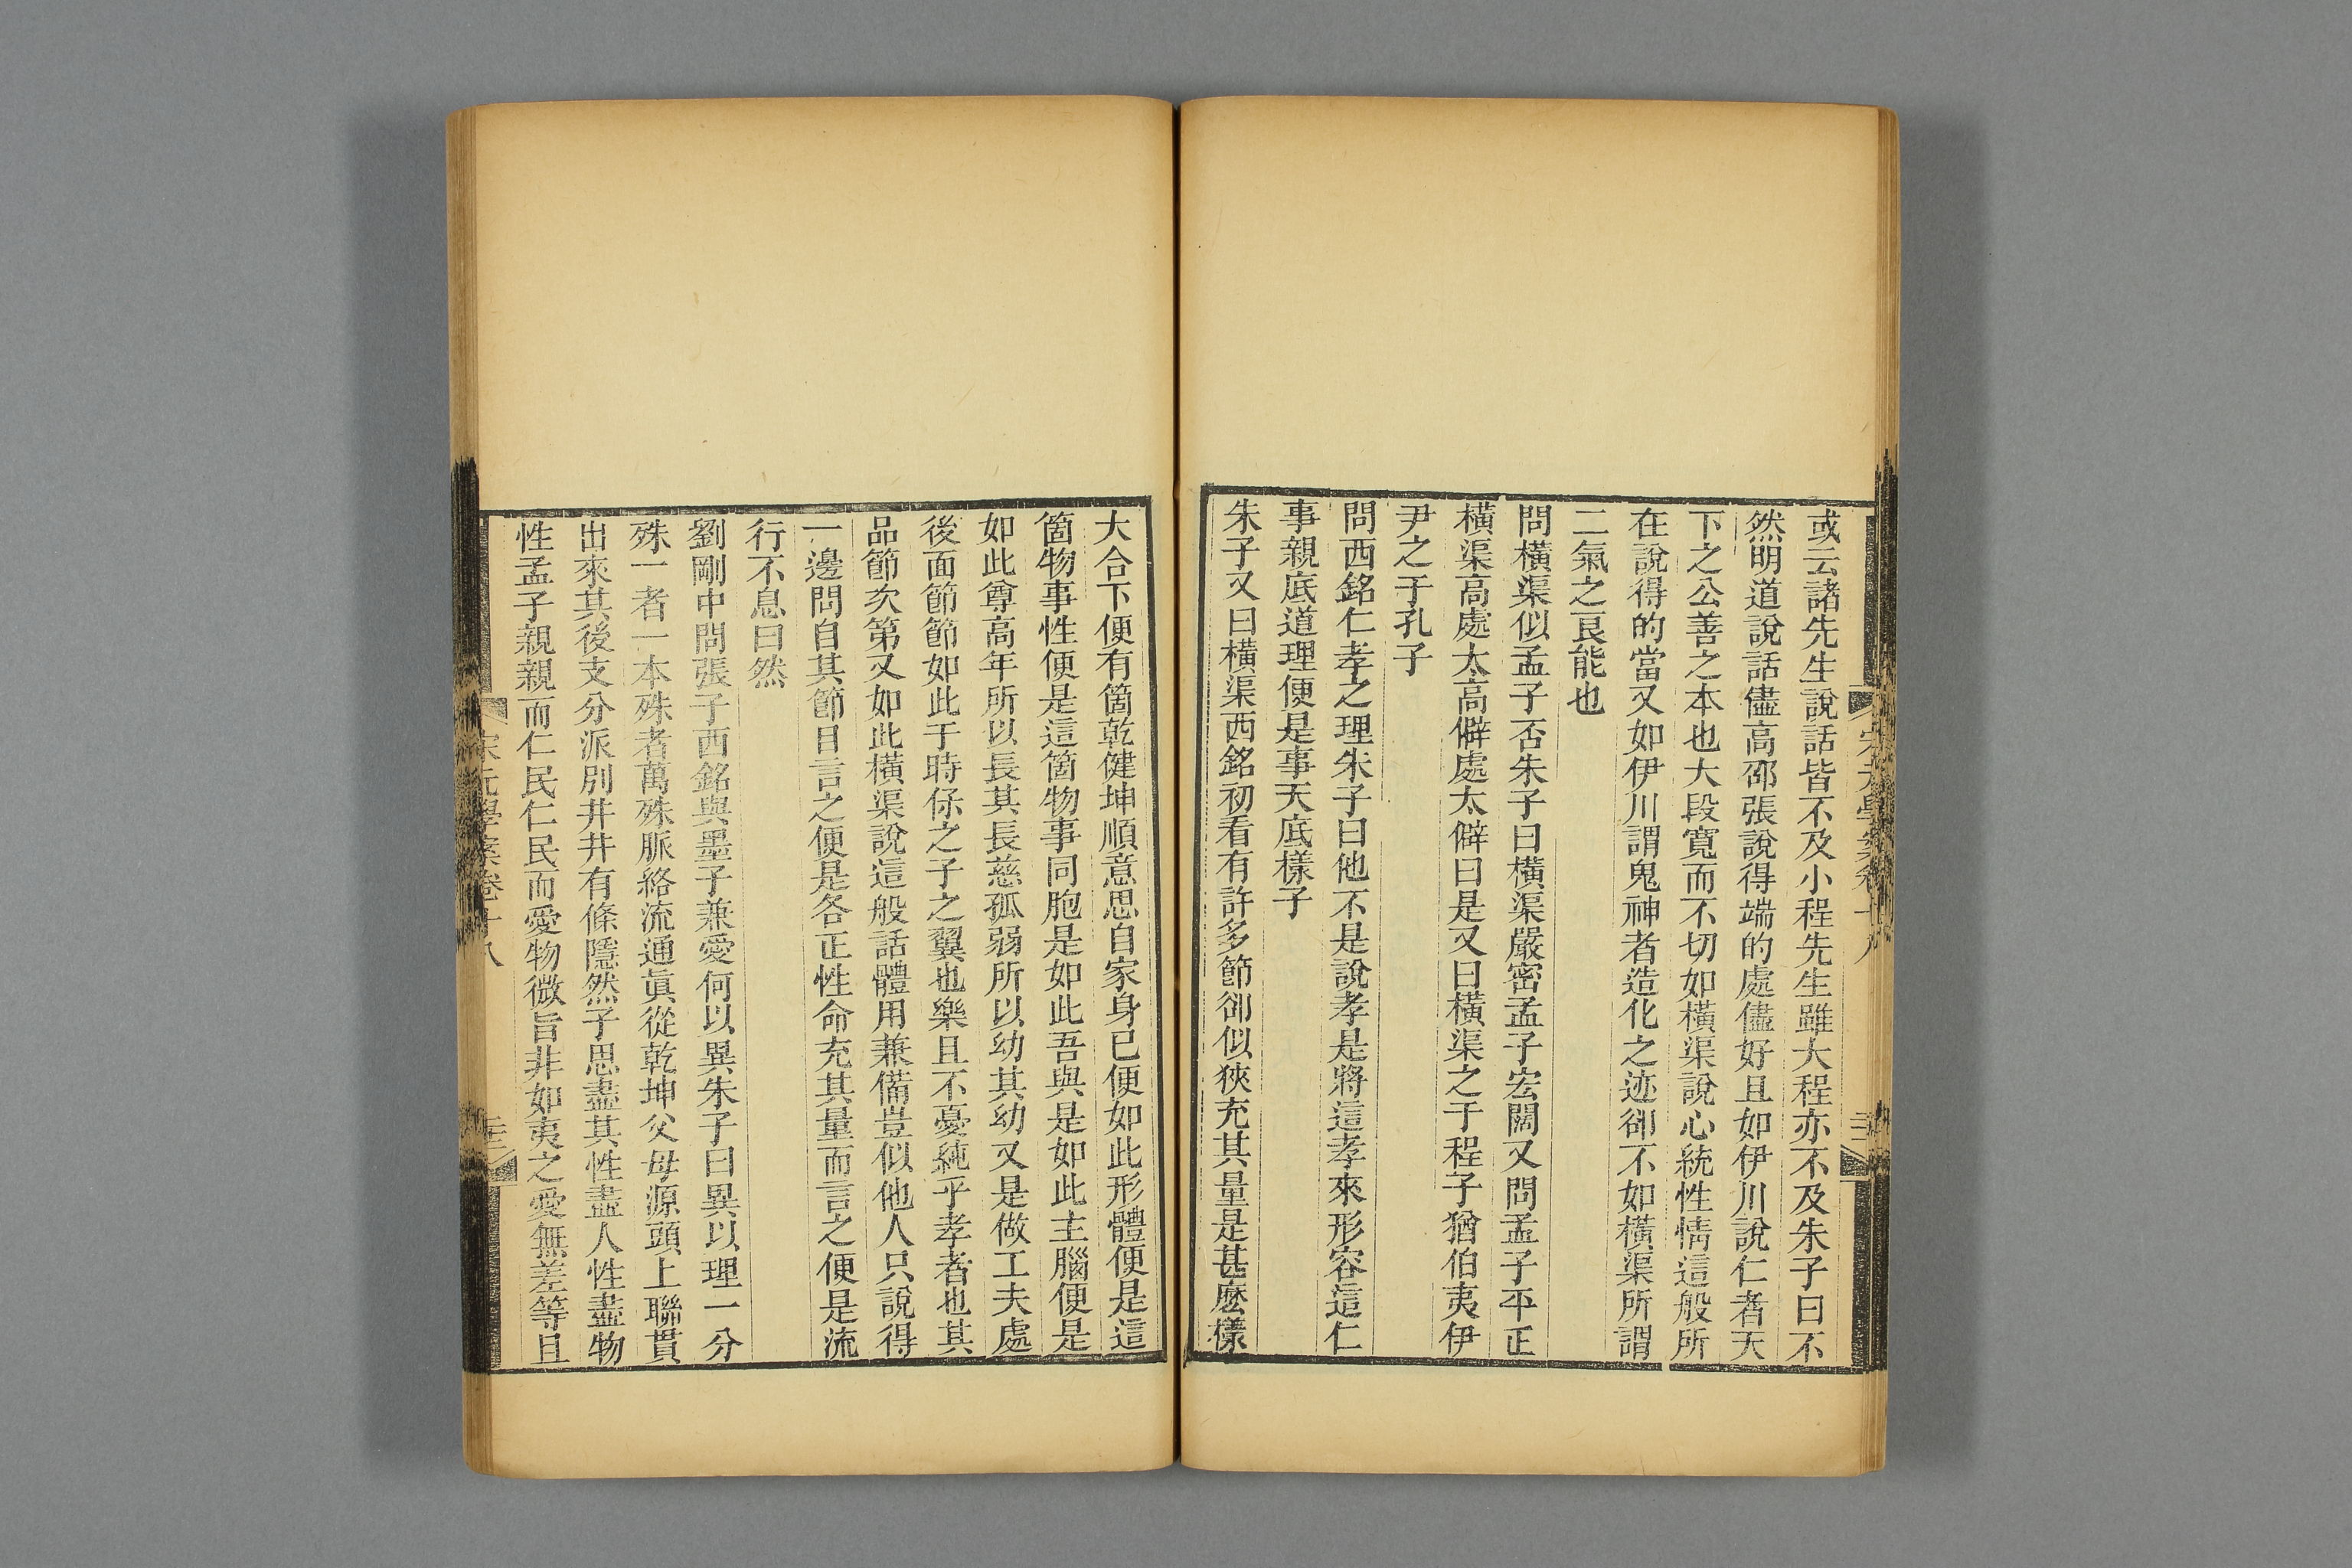 或云諸先生說話皆不及小程先生雖大程亦不及朱子曰不
然明道說話儘高邵張說得端的處儘好且如伊川說仁者天
下之公善之本也大段寬而不切如橫渠說心統性情這般所
在說得的當又如伊川謂鬼神者造化之迹卻不如橫渠所謂
二氣之良能也
問橫渠似孟子否朱子曰橫渠嚴密孟子宏闊又問孟子平正
橫渠高處太高僻處太僻曰是又曰橫渠之于程子猶伯夷伊
尹之于孔子
問西銘仁孝之理朱子曰他不是說孝是將這孝來形容這仁
事親底道理便是事天底樣子
朱子又曰橫渠西銘初看有許多節卻似狹充其量是甚麽樣
大合下便有箇乾健坤順意思自家身已便如此形體便是這
箇物事性便是這箇物事同胞是如此吾與是如此主腦便是
如此尊高年所以長其長慈孤弱所以幼其幼又是做工夫處
後面節節如此于時保之子之翼也樂且不憂純乎孝者也其
品節次第又如此橫渠說這般話體用兼備豈似他人只說得
一邊問自其節目言之便是各正性命充其量而言之便是流
行不息曰然
劉剛中問張子西銘與墨子兼愛何以異朱子曰異以理一分
殊一者一本殊者萬殊脈絡流通眞從乾坤父母源頭上聯貫
出來其後支分派別井井有條隱然子思盡其性盡人性盡物
性孟子親親而仁民仁民而愛物微旨非如夷之愛無差等且
宋元學案卷十八